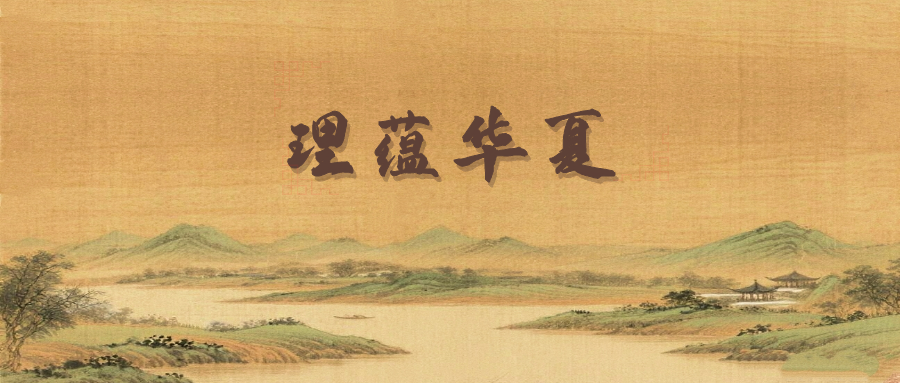 理蕴华夏